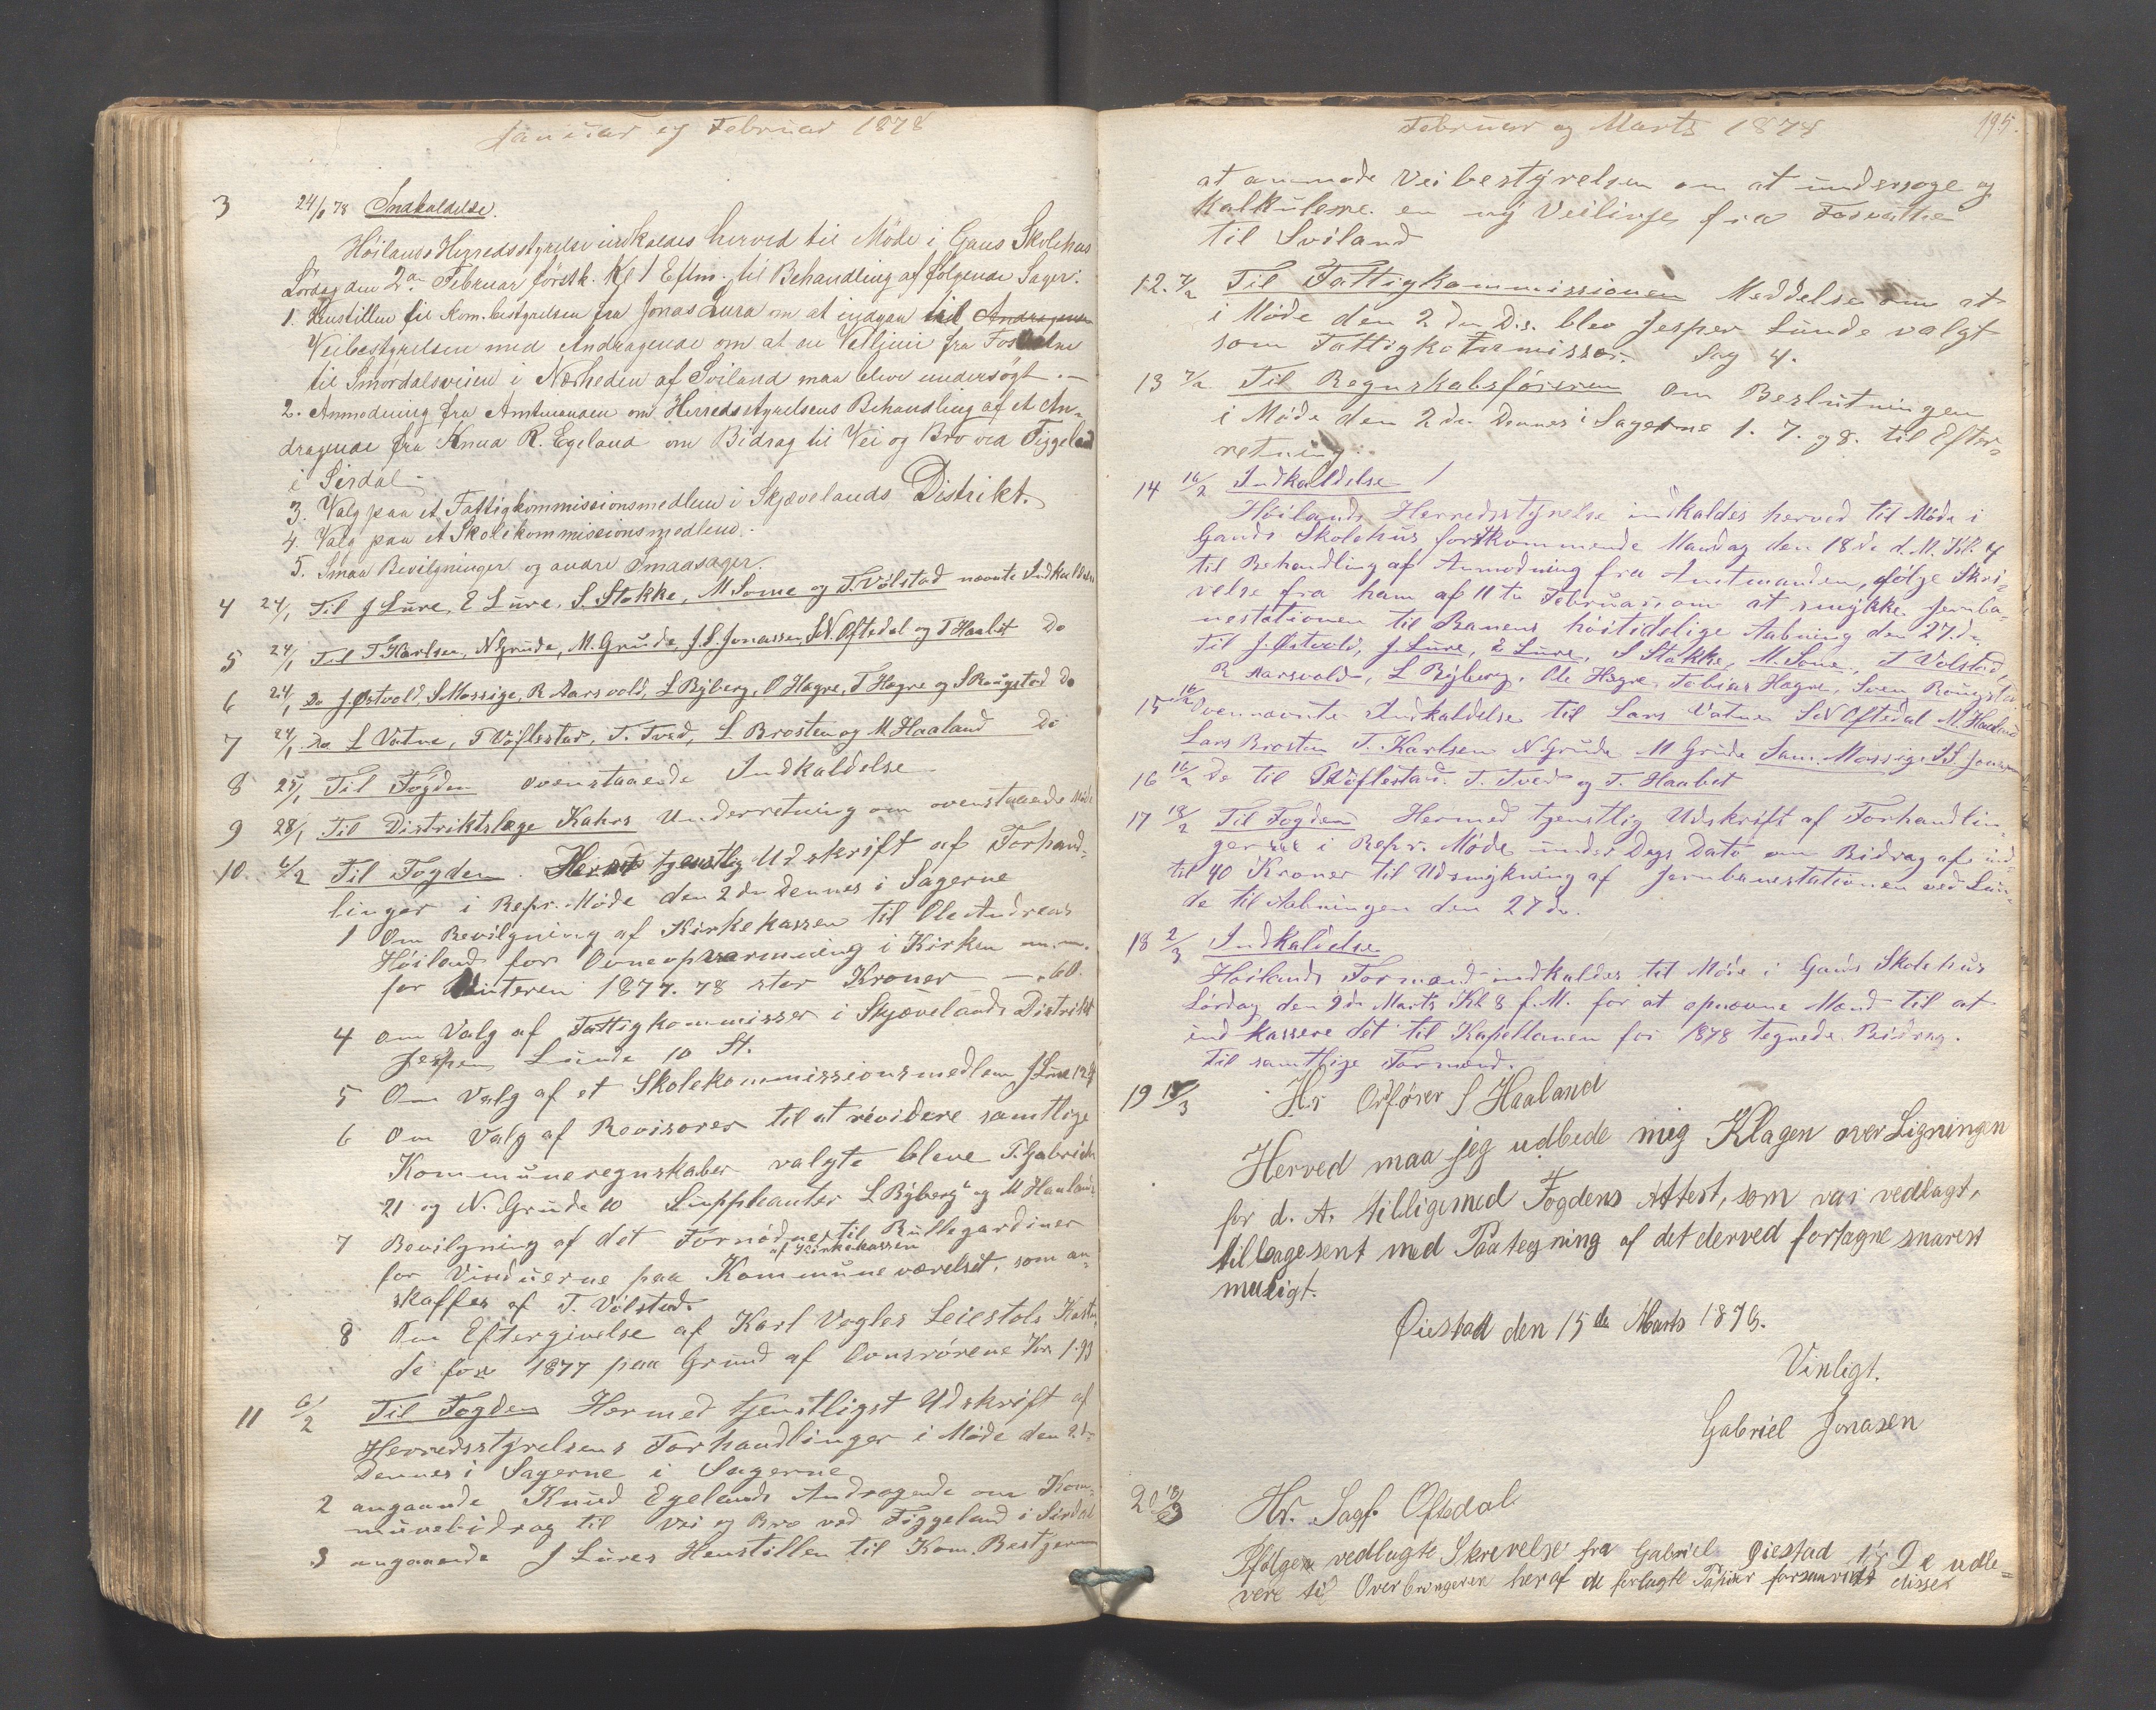 Januar og Februar 1878
3 24/1 78 Indkaldelse.
Höilands Herredsstyrelse indkaldes herved til Möde i Gans Skolehus
Lördag den 2den Februar förstk. Kl 1 Eftm. til Behandling af følgende Sager:
1. Henstillen til Kom.bestyrelsen fra Jonas Lura om at indgaa til Andragende
Veibestyrelsen med Andragende om at en Veilinie fra Fosvatne
til Smördalsveien i Nærheden af Sviland maa blive undersögt. —
2. Anmodning fra Amtmanden om Herredsstyrelsens Behandling af et An-
dragende fra Knud R. Egeland om Bidrag til Vei og Bro ved Figgeland
i Sirdal
3. Valg paa et Fattigkommissionsmedlem i Skjævelands Distrikt.
4. Valg paa et Skolekommissionsmedlem.
5. Smaa Bevilgninger og andre Smaasager.
4 24/1 Til J Lure, E Lure, S. Stokke, M Some og T. Völstad nævnte Indkaldelse
5 24/1 Til T Karlsen, N Grude, M. Grude, J. S. Jonassen, S N. Oftedal og T Haabet Do
6 24/1 Do J. Østvold, S Mossige, R Aarsvold, L Ryberg, O Hogre, T Hogre og S Rougstad Do
7 24/1 Do L Vatne, T Vöflestad, T. Tved, L Brosten og M Haaland Do
8 25/1 Til Fogden ovenstaaende Indkaldelse
9 28/1 Til Distriktslæge Kahrs Underretning om ovenstaaende Möde
10. 6/2 Til Fogden. Herved tjenstlig Udskrift af Forhand-
linger i Repr. Möde den 2den Dennes i Sagerne
1 Om Bevilgning af Kirkekassen til Ole Andreas
Höiland for Ovneopvarmning i Kirken m.m.
for Vinteren 1877-78 stor Kroner — 60.
4 om Valg af Fattigkommissær i Skjævelands Distrikt
Jesper Lunde 10 St.
5 Om Valg af et Skolekommissionsmedlem J Lure 12 St
6 Om Valg af Revisorer til at revidere samtlige
Kommuneregnskaber valgte bleve T. Gabriels
21 og N. Grude 10 Supplianter L Ryberg og M Haaland
7 Bevilgning af det Fornödne til Rullegardiner
af Kirkekassen
for Vinduerne paa Kommuneværelset, som an-
skaffes af T. Völstad.
8 Om Eftergivelse af Karl Vogles Leiestols
de for 1877 paa Grund af Kr. 1.93
11 6/2 Til Fogden Hermed tjenstligst Udskrift af
Herredsstyrelsens Forhandlinger i Möde den 2den
Dennes i Sagerne i Sagerne
2 angaaende Knud Egelands Andragende om Kom-
munebidrag til Vei og Bro ved Figgeland i Sirdal
3 angaaende J Lures Henstillen til Kom. Bestyrerne
Februar og Marts 1878 195.
at anmode Veibestyrelsen om at undersøge og
Kalkulere en ny Veilinje fra Fosvatne
til Sviland
12. 7/2 Til Fattigkommissionen Meddelse om at
i Möde den 2den D.s. blev Jesper Lunde valgt
som Fattigkommissær. Sag 4.
13 7/2 Til Regnskabsföreren om Beslutningen
i Möde den 2den Dennes i Sagerne 1. 7. og 8. til Efter-
retning.
14 16/2 Indkaldelse
Höilands Herredsstyrelse indkaldes herved til Möde i
Gands Skolehus förstkommende Mandag den 18de d. M. Kl. 4
til Behandling af Anmodning fra Amtmanden, ifölge Skri-
velse fra ham af 11te Februar, om at smykke Jernba-
nestationen til Banens höitidelige Aabning den 27de
Til J. Østvold, J. Lure, E Lure, S Stokke, M. Some, T Volstad,
R Aarsvold, L Ryberg, Ole Hogre, Tobias Hogre, Sven Rougstad
15 16/2 Ovennævnte Indkaldelse til Lars Vatne S N Oftedal M. Haaland
Lars Brosten T. Karlsen N Grude M Grude Sam. Mossige J S Jonassen
16 16/2 Do til T Vöflestad T. Tved og T. Haabet
17 18/2 Til Fogden Hermed tjenstlig Udskrift af Forhandlin-
ger i Repr. Möde under Dags Dato om Bidrag af ind-
til 40 Kroner til Udsmykning af Jernbanestationen ved Lun-
de til Aabningen den 27de.
18 2/3 Indkaldelse
Höilands Formænd indkaldes til Möde i Gans Skolehus
Lördag den 9de Marts Kl 8 f.M. for at opnævne Mænd til at
indkassere det til Kapellanen for 1878 tegnede Bidrag.
Til samtlige Formænd.
19 18/3 Hr Ordförer S Haaland
Herved maa jeg udbede mig Klagen over Ligningen
for d. A. tilligemed Fogdens Attest, som var vedlagt,
tilbagesent med Paategning af det derved fortagne snarest
muligt.
Øiestad den 15de Marts 1878.
Vinligt.
Gabriel Jonasen
20 18/3 Hr. Sagf. Oftedal
Ifølgen vedlagte Skrevelse fra Gabriel Øiestad De udle-
vere til Overbringeren heraf de forlagte Papirer forsaavidt disse